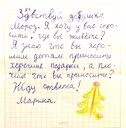 Здравствуй дедушка
Мороз. Я хочу у вас спро-
сить, где вы живёте?
Я знаю что вы хоро-
шим детям приносите
хорошие подарки, а пло-
хим что вы приносите?
Жду ответа!
Марина.